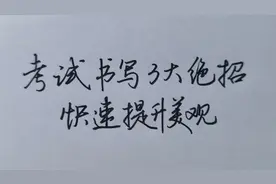 考试书写3大绝招
快速提升美观